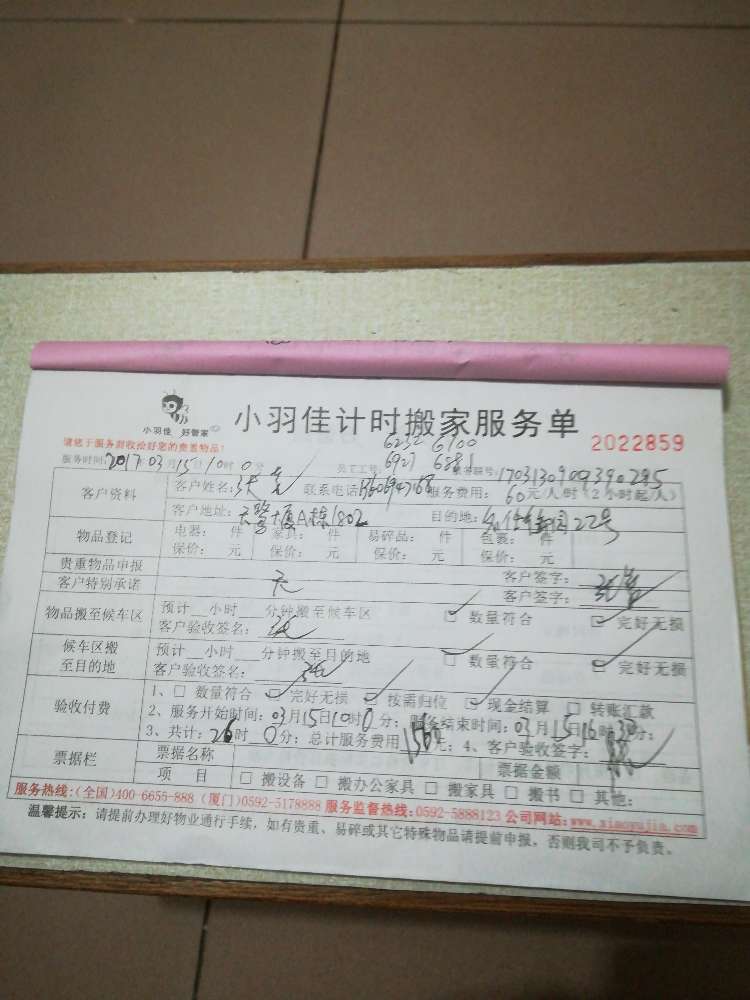 小羽佳 好管家
小羽佳计时搬家服务单
请您于服务前收拾好您的贵重物品!
6232 6700
2022859
服务时间:2017年03月15日10时0分 员工工号: 6927 6881 业务联号:1703130909390295
客户资料 客户姓名: 联系电话 服务费用:60元/人/时(2小时起/人)
客户地址: 大厦A栋1802 目的地: 22号
物品登记 电器: 件 家具: 件 易碎品: 件 包裹: 件
保价: 元 保价: 元 保价: 元 保价: 元
贵重物品申报 客户签字:
客户特别承诺 无 客户签字:
物品搬至候车区 预计__小时__分钟搬至候车区 ☑ 数量符合 ☑ 完好无损
客户验收签名:
候车区搬至目的地 预计__小时__分钟搬至目的地 ☑ 数量符合 ☑ 完好无损
客户验收签名:
验收付费 1、☐ 数量符合 ☑ 完好无损 ☑ 按需归位 ☑ 现金结算 ☐ 转账汇款
2、服务开始时间:03月15日10时0分; 服务结束时间:03月15日16时30分;
3、共计:26时0分;总计服务费用1560元;4、客户验收签字:
票据栏 票据名称 票据金额
项 目 ☐ 搬设备 ☐ 搬办公家具 ☐ 搬家具 ☐ 搬书 ☐ 其他:
服务热线:(全国)400-6655-888 (厦门)0592-5178888 服务监督热线:0592-5888123 公司网站:www.xiaoyujia.com
温馨提示:请提前办理好物业通行手续,如有贵重、易碎或其它特殊物品请提前申报,否则我司不予负责。